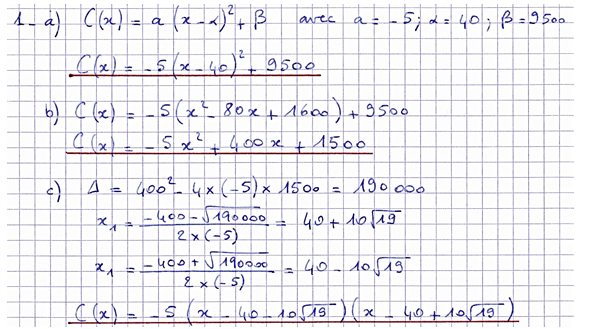 1-a) C(x) = a (x-α)² + β avec a = -5 ; α = 40 ; β = 9500
C(x) = -5(x-40)² + 9500
b) C(x) = -5(x² - 80x + 1600) + 9500
C(x) = -5x² + 400x + 1500
c) Δ = 400² - 4×(-5)×1500 = 190 000
x₁ = (-400 - √190000) / (2×(-5)) = 40 + 10√19
x₁ = (-400 + √190000) / (2×(-5)) = 40 - 10√19
C(x) = -5 (x - 40 - 10√19)(x - 40 + 10√19)